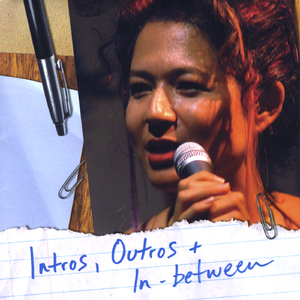 Intros, Outros +
In-between